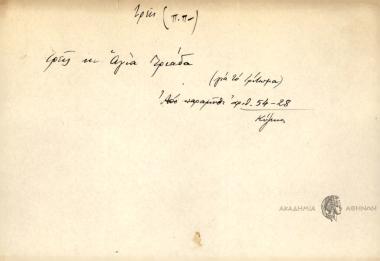 τρεῖς (π.π.)
τρεῖς κι Ἁγία Τριάδα
(γιὰ τὸ τρίτωμα)
Ἀπὸ παραμύθι ἀριθ. 54-28
Κύμης
ΑΚΑΔΗΜΙΑ ΑΘΗΝΩΝ